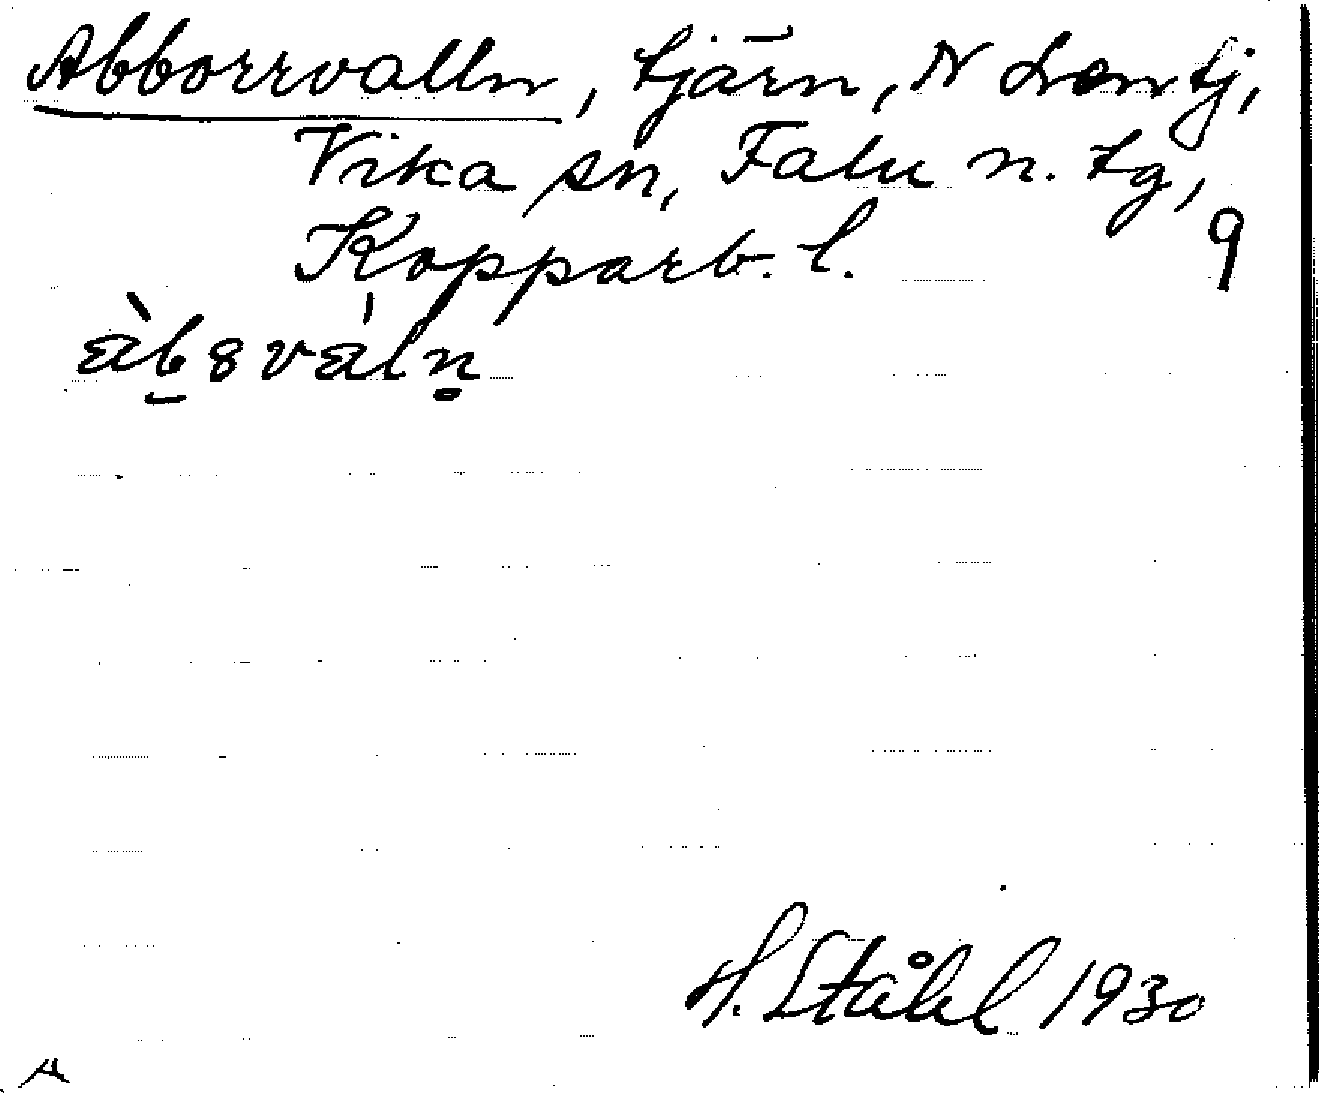 Abborrvalln, tjärn, N Lontj,
Vika sn, Falu n. tg,
Kopparb. l. 9
H. Ståhl 1930
A